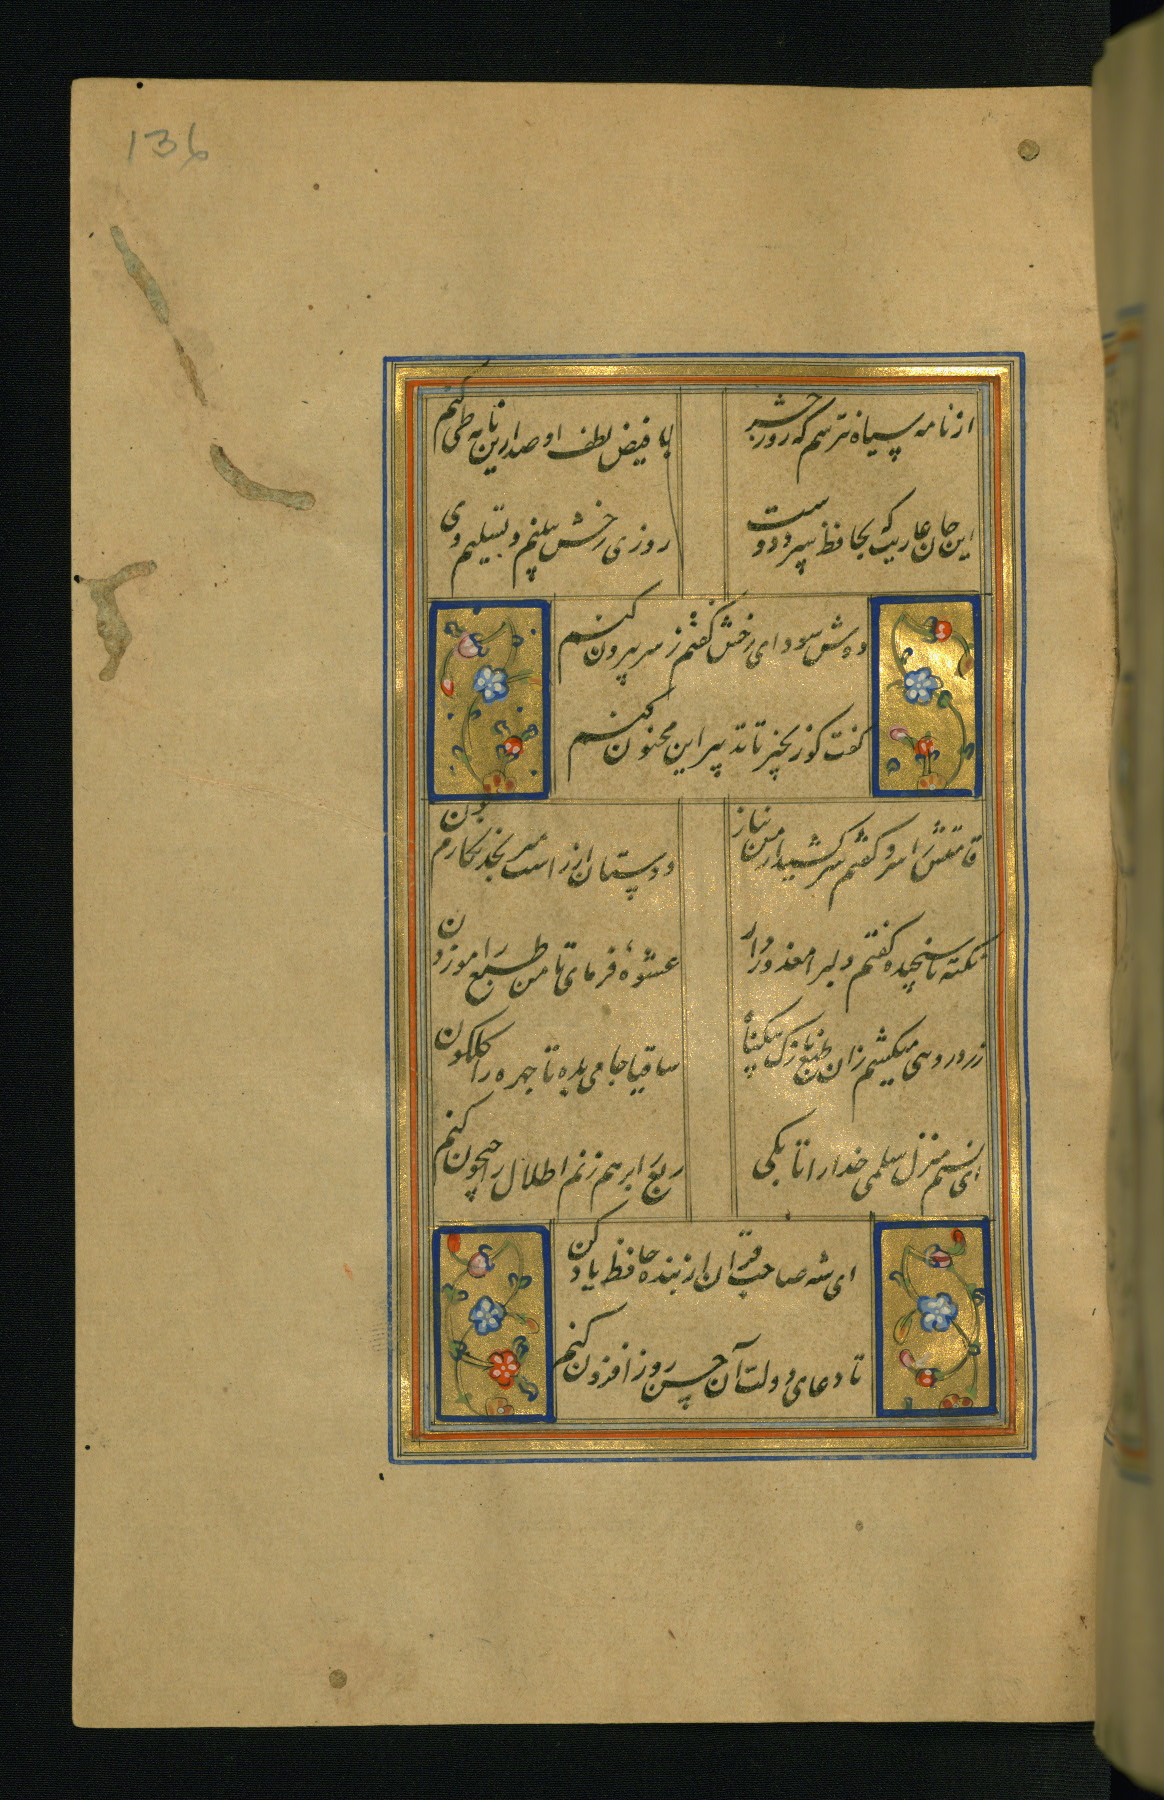 136
از نامه سیاه نترسم که روز حشر
با فیض لطف او صد ازین نامه طی کنم
این جان عاریت که بحافظ سپرد دوست
روزی رخش ببینم و تسلیم وی کنم
دوش سودای رخش گفتم ز سر بیرون کنم
گفت کو زنجیر تا تدبیر این مجنون کنم
قامتش را سرو گفتم سر کشید از من نیاز
دوستان از راست میرنجد نگارم چون
نکته ناسنجیده گفتم دلبرا معذور دار
عشوهٔ فرمای تا من طبع را موزون
زرد رویی میکشم زان طبع نازک بیگناه
ساقیا جامی بده تا چهره را گلگون
ای نسیم منزل سلمی خدا را تا بکی
ربع را برهم زنم اطلال را جیحون کنم
ای شه صاحب قران از بنده حافظ یاد کن
تا دعای دولت آن حسن روز افزون کنم